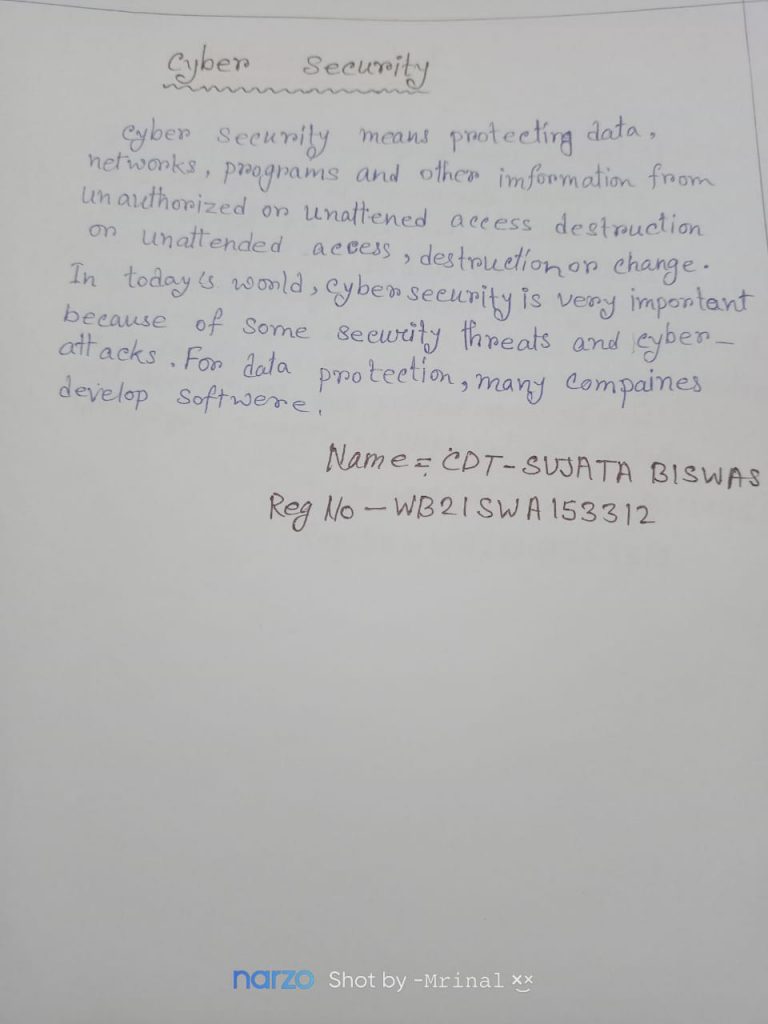 Cyber Security
Cyber Security means protecting data,
networks, programs and other imformation from
unauthorized or unattened access destruction
or unattended access, destruction or change.
In today's world, cyber security is very important
because of some security threats and cyber-
attacks. For data protection, many compaines
develop softwere.
Name = CDT-SUJATA BISWAS
Reg No - WB21SWA153312
narzo Shot by -Mrinal